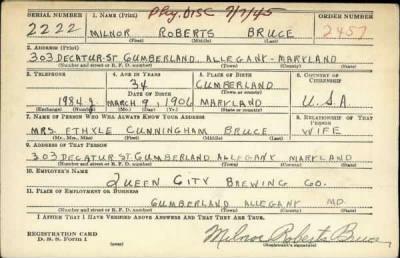 SERIAL NUMBER 1. NAME (Print) Phy. Disc 7/7/45 ORDER NUMBER
2222 MILNOR ROBERTS BRUCE 2457
(First) (Middle) (Last)
2. ADDRESS (Print)
303 DECATUR-ST. CUMBERLAND, ALLEGANY-MARYLAND
(Number and street or R. F. D. number) (Town) (County) (State)
3. TELEPHONE 4. AGE IN YEARS 5. PLACE OF BIRTH 6. COUNTRY OF CITIZENSHIP
34 CUMBERLAND
(Town or county)
1984 J MARCH 9, 1906 MARYLAND U.S.A
(Exchange) (Number) (Mo.) (Day) (Yr.) (State or country)
7. NAME OF PERSON WHO WILL ALWAYS KNOW YOUR ADDRESS 8. RELATIONSHIP OF THAT PERSON
MRS. ETHYLE CUNNINGHAM BRUCE WIFE
(Mr., Mrs., Miss) (First) (Middle) (Last)
9. ADDRESS OF THAT PERSON
303 DECATUR ST. CUMBERLAND ALLEGANY MARYLAND
(Number and street or R. F. D. number) (Town) (County) (State)
10. EMPLOYER'S NAME
QUEEN CITY BREWING CO.
11. PLACE OF EMPLOYMENT OR BUSINESS
CUMBERLAND ALLEGANY MD.
(Number and street or R. F. D. number) (Town) (County) (State)
I AFFIRM THAT I HAVE VERIFIED ABOVE ANSWERS AND THAT THEY ARE TRUE.
REGISTRATION CARD
D. S. S. Form 1 Milnor Roberts Bruce
(Registrant's signature)